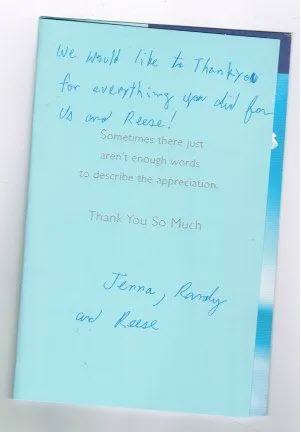 We would like to Thankyou
for everything you did for
us and Reese!
Sometimes there just
aren't enough words
to describe the appreciation.
Thank You So Much
Jenna, Randy
and Reese